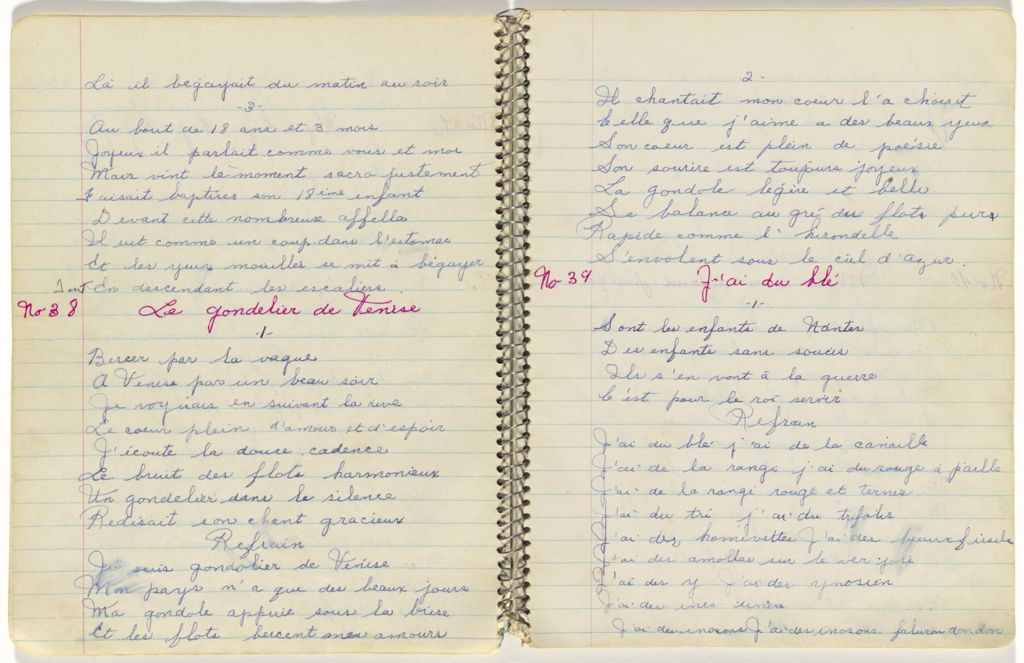 Là il begayait du matin au soir
-3-
Au bout de 18 ans et 3 mois
Joyeux il parlait comme vous et moi
Mais vint le moment sacro justement
Faisait baptises son 18ième enfant
Devant cette nombreux affella
Il eut comme un coup dans l'estomac
Et les yeux mouilles se mit à bégayer
Tout En descendant les escaliers.
No 38 Le gondelier de Venise
-1-
Bercer par la vague
A Venise par un beau soir
Je voyiais en suivant la rive
Le coeur plein d'amour et d'espoir
J'écoute la douce cadence
Le bruit des flots harmonieux
Un gondelier dans le silence
Redisait son chant gracieux
Refrain
Je suis gondolier de Venise
Mon pays n'a que des beaux jours
Ma gondole appuie sous la brise
Et les flots bercent mes amours
-2-
Il chantait mon coeur l'a choisit
Celle que j'aime a des beaux yeux
Son coeur est plein de poésie
Son sourire est toujours joyeux
La gondole légère et belle
Se balance au gré des flots purs
Rapide comme l'hirondelle
S'envolent sous le ciel d'azur.
No 39 J'ai du blé
-1-
Sont les enfants de Nantes
Des enfants sans soucis
Ils s'en vont à la guerre
C'est pour le roi servir
Refrain
J'ai du blé j'ai de la canaille
J'ai de la rangi j'ai du rouge à paille
J'ai de la rangi rouge et ternes
J'ai du tri j'ai du
J'ai des homivettes J'ai des
J'ai des amollas sur le ver
J'ai des y J'ai des ynosien
J'ai des
J'ai des inosons J'ai des inosons faluron don don